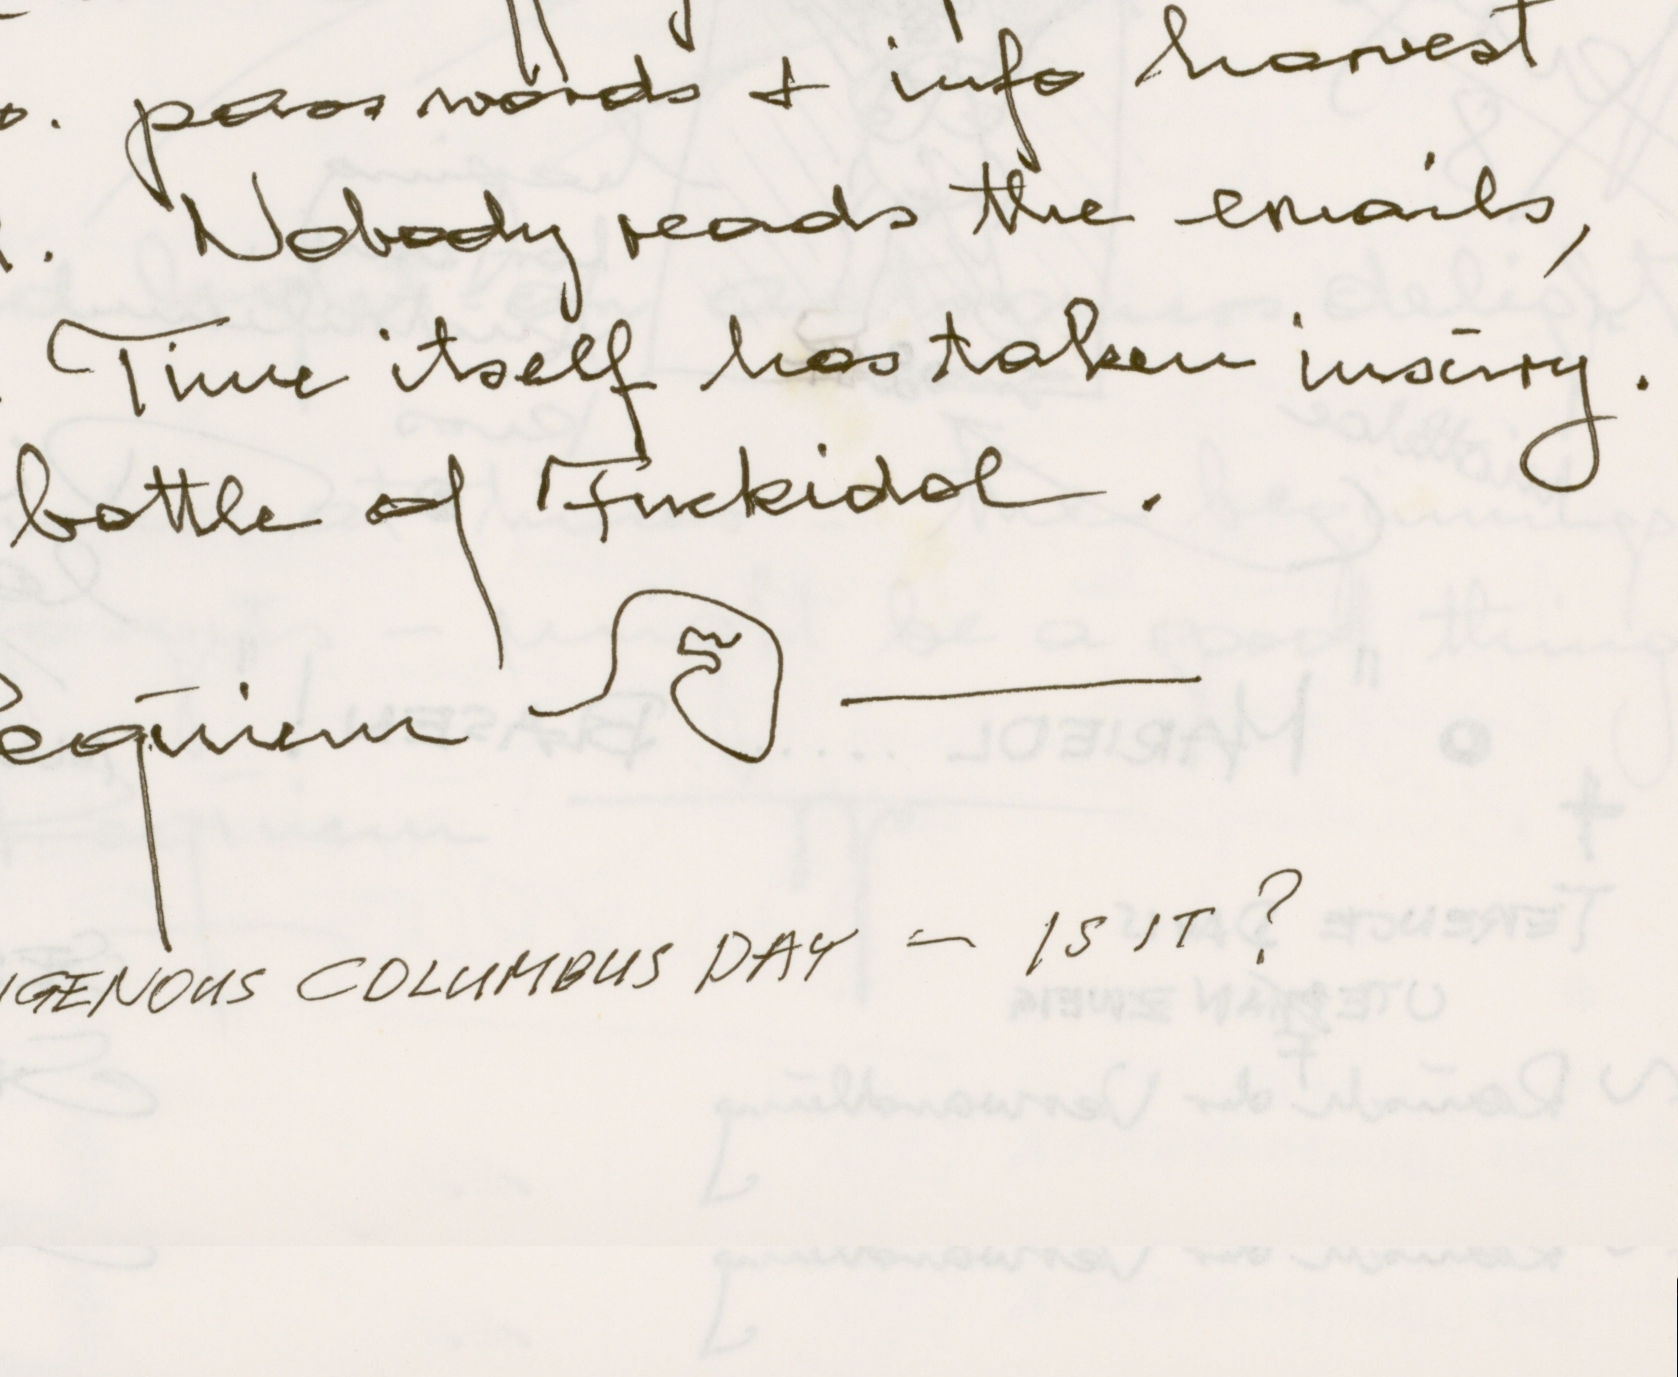 passwords + info harvest
Nobody reads the emails,
Time itself has taken injury.
bottle of Fuckidol.
Requiem
IGENOUS COLUMBUS DAY — IS IT?